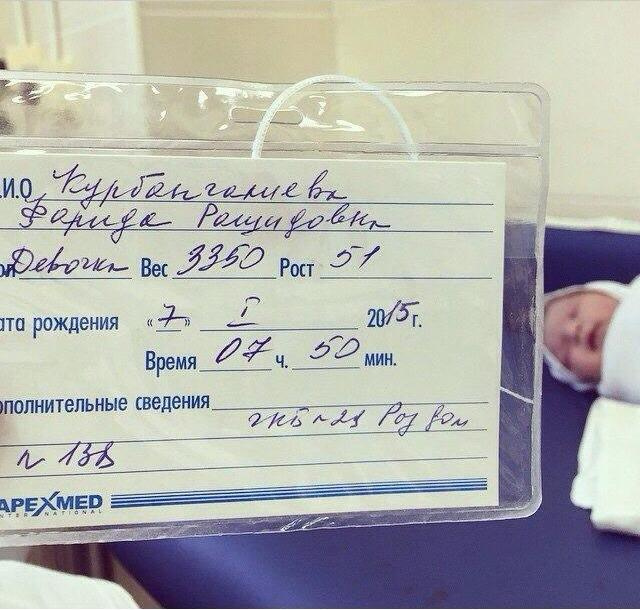 .И.О Курбангалиева
Фарида Рашидовна
ол Девочка Вес 3350 Рост 51
ата рождения «7» I 2015г.
Время 07 ч. 50 мин.
ополнительные сведения
ГКБ №29 Роддом
№ 138
APEXMED
INTERNATIONAL